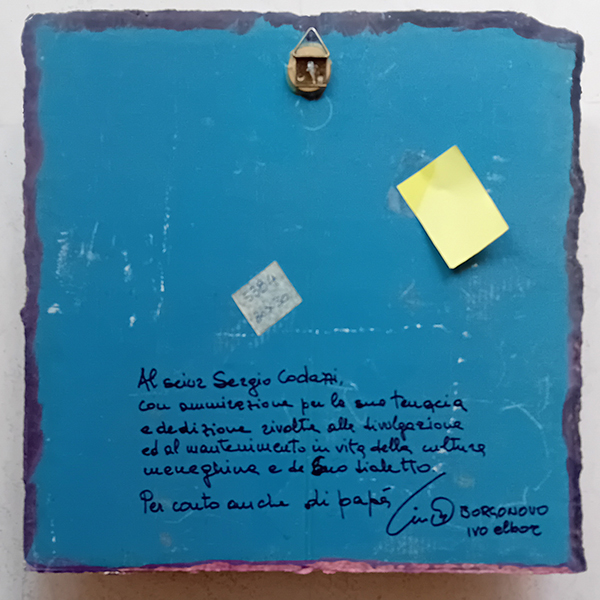 5384
Al scior Sergio Codazzi,
con ammirazione per la sua tenacia
e dedizione rivolta alla divolgazione
ed al mantenimento in vita della cultura
meneghina e de suo dialetto.
Per conto anche di papà
BORGONOVO
IVO elbor